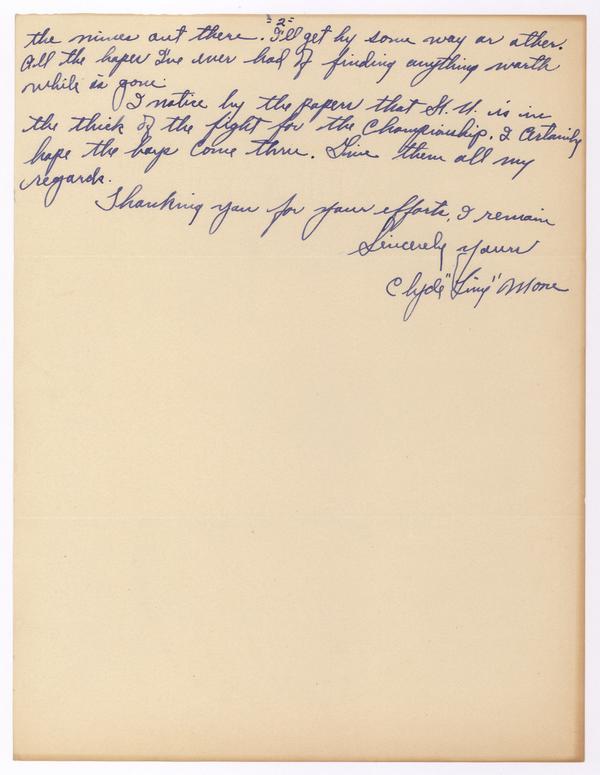 -2-
the mines out there. I'll get by some way or other.
All the hopes I've ever had of finding anything worth
while is gone.
I notice by the papers that St. U. is in
the thick of the fight for the Championship. I certainly
hope the boys come thru. Give them all my
regards.
Thanking you for your efforts, I remain
Sincerely yours
Clyde "Tiny" Moore